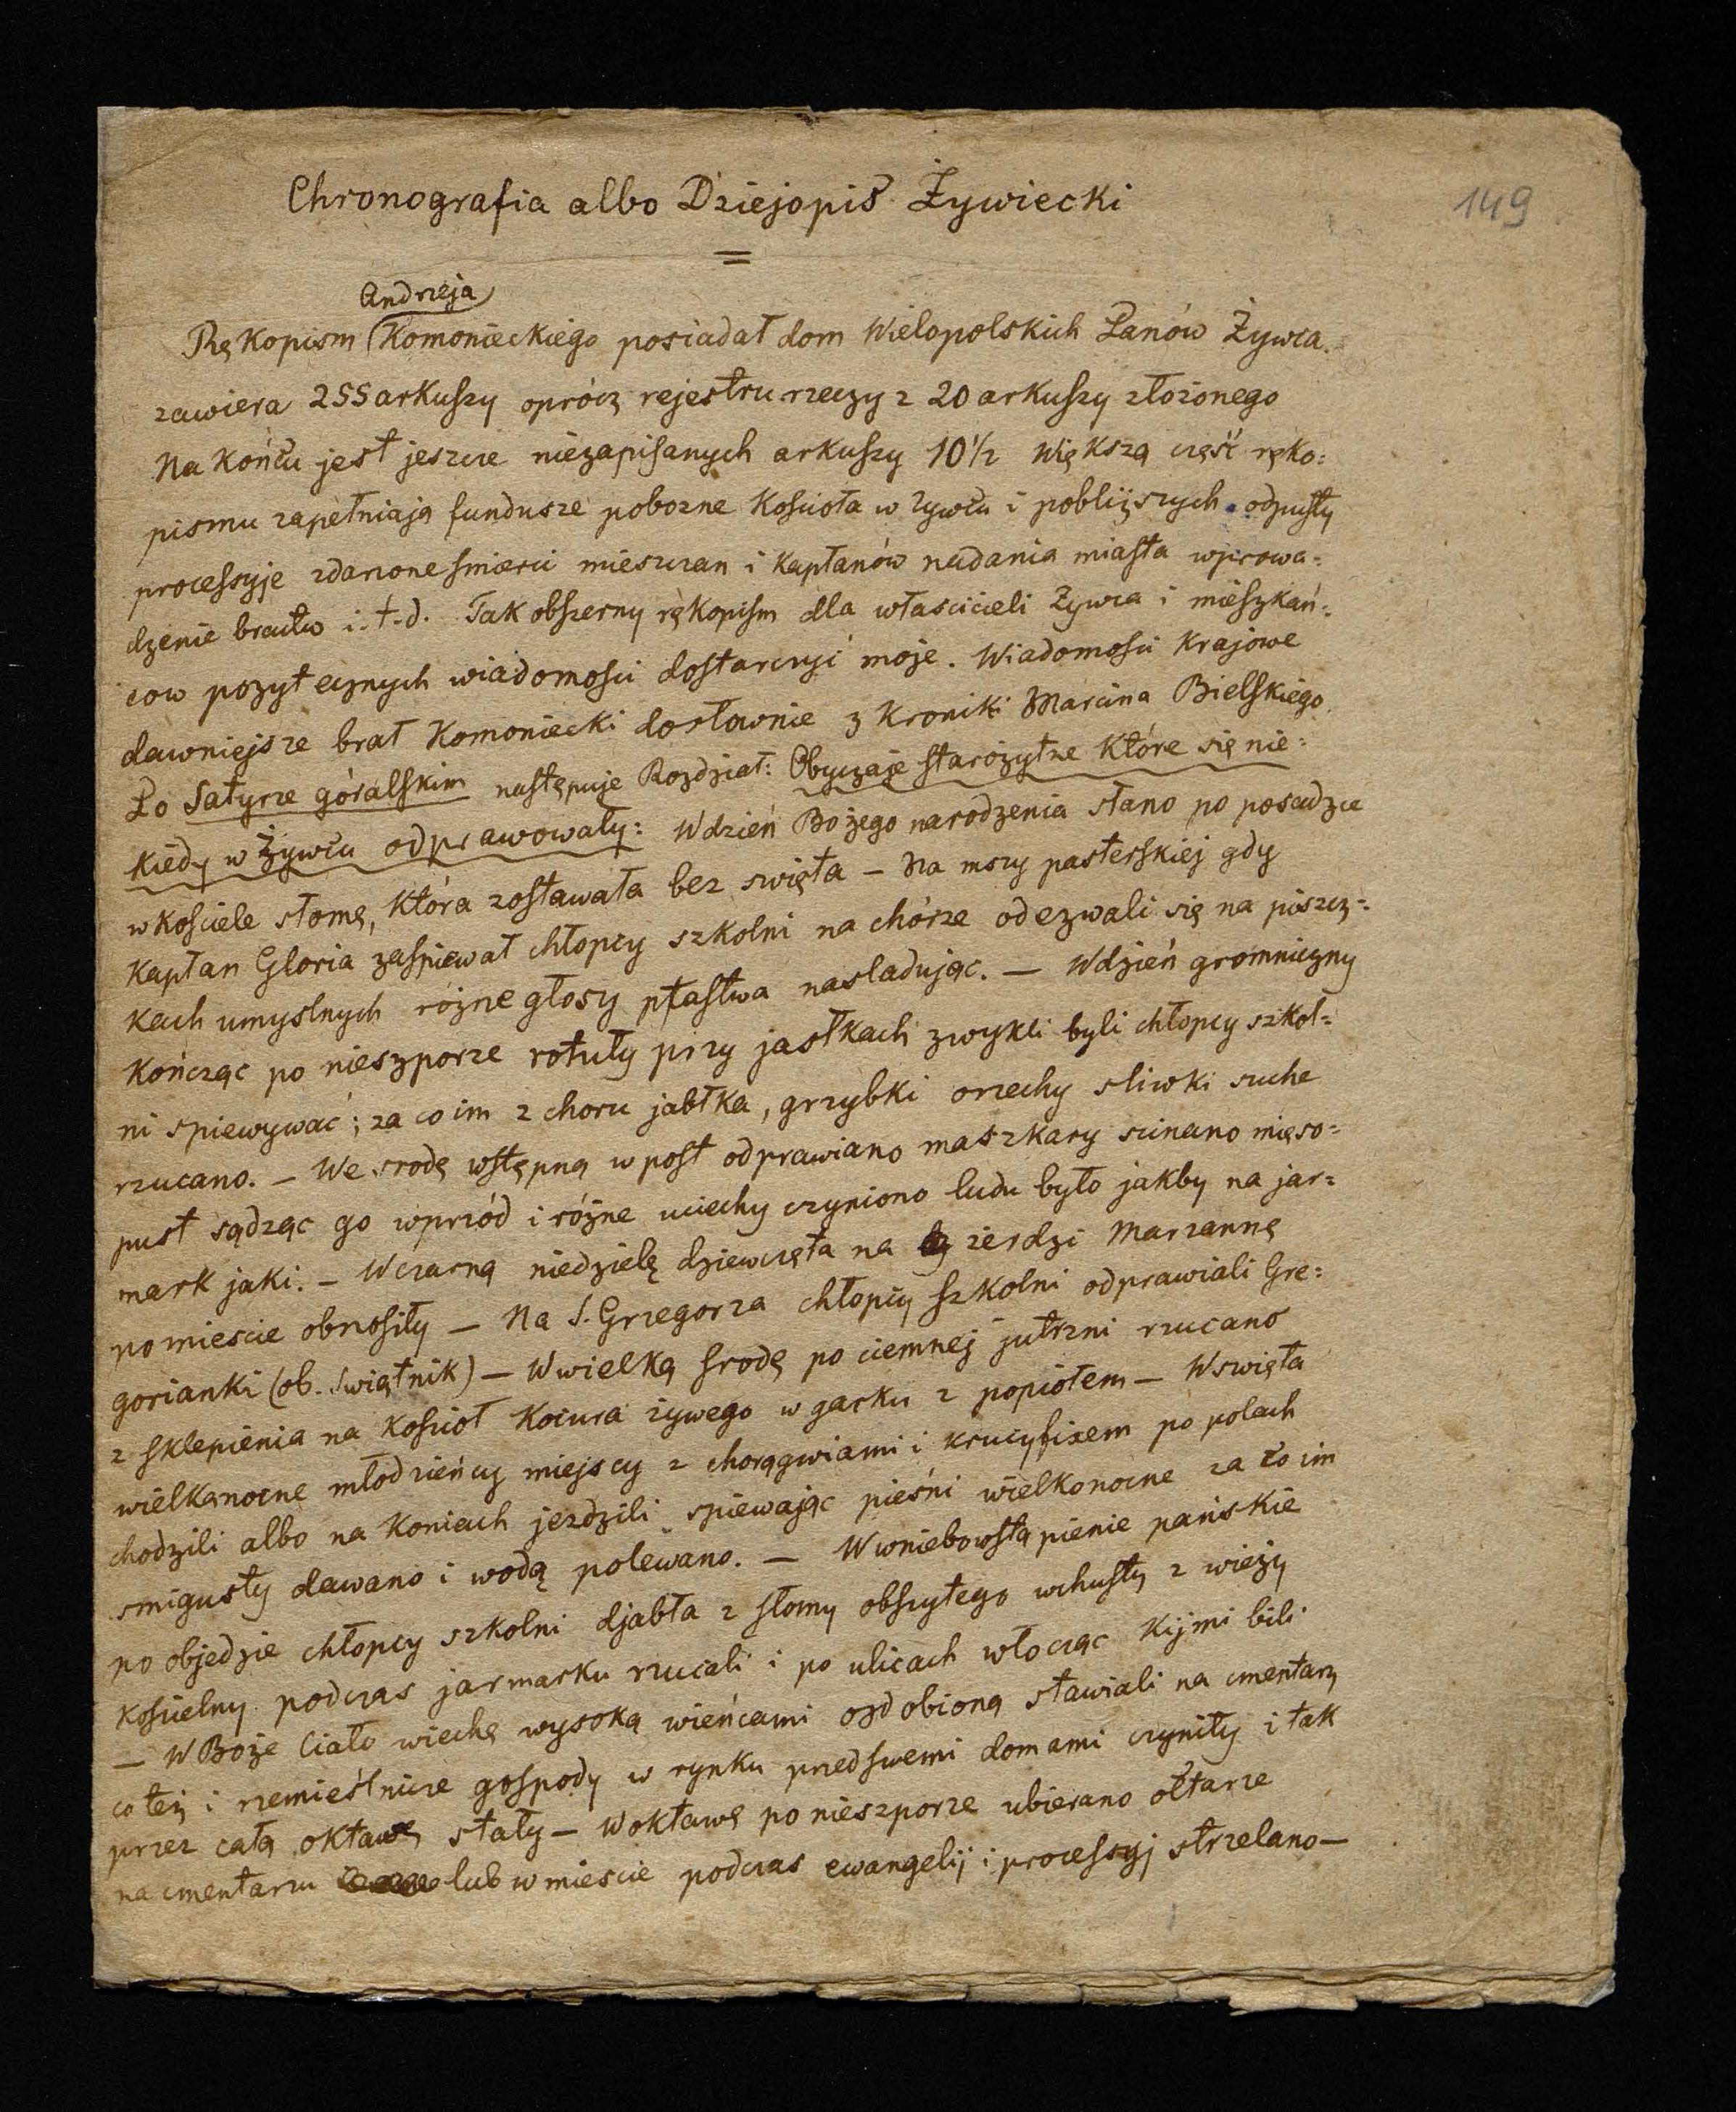 Chronografia albo Dziejopis Żywiecki
149
=
Andrzeja
Rękopism Komonieckiego posiadał dom Wielopolskich Panów Żywca.
zawiera 255 arkuszy oprócz rejestru rzeczy z 20 arkuszy złożonego
Na końcu jest jeszcze niezapisanych arkuszy 10 1/2 Większą część ręko=
pismu zapełniają fundusze pobożne Kościoła w Żywcu i pobliższych odpusty
processyje zdarzone śmierci mieszczan i kapłanów nadania miasta wprowa=
dzenie bractw i.t.d. Tak obszerny rękopism dla właścicieli Żywca i mieszkań=
cow pozytecznych wiadomości dostarczyć może. Wiadomości Krajowe
dawniejsze brał Komoniecki dosłownie z Kroniki Marcina Bielskiego.
Po Satyrze góralskim następuje Rozdział: Obyczaje starożytne które się nie=
kiedy w Żywcu odprawowały: W dzień Bożego narodzenia słano po posadzce
w kościele słomę, która zostawała bez święta — Na mszy pasterskiej gdy
Kapłan Gloria zaśpiewał chłopcy szkolni na chórze odezwali się na piszcz=
kach umyslnych różne głosy ptastwa nasladując. — W dzień gromniczny
kończąc po nieszporze rotuły przy jasłkach zwykli byli chłopcy szkol=
ni spiewywać; za co im z choru jabłka, grzybki orzechy sliwki suche
rzucano. — We srodę wstępną w post odprawiano maszkary scinano mięso=
pust sądząc go wprzód i różne uciechy czyniono ludu było jakby na jar=
mark jaki. — W czarną niedzielę dziewczęta na żerdzi Marzannę
po miescie obnosiły — Na S. Grzegorza chłopcy szkolni odprawiali Gre=
gorianki (ob. Swiątnik) — W wielką srodę po ciemnej jutrzni rzucano
z sklepienia na kościoł kocura żywego w garku z popiołem — W swięta
wielkanocne młodzieńcy miejscy z chorągwiami i krucyfixem po polach
chodzili albo na koniach jezdzili spiewając pieśni wielkonocne za co im
smigusty dawano i wodą polewano. — W wniebowstąpienie pańskie
po objedzie chłopcy szkolni djabła z słomy obszytego w chusty z wieży
kościelny podczas jarmarku rzucali i po ulicach włocząc kijmi bili
— W Boże Ciało wiechę wysoką wieńcami ozdobioną stawiali na cmentarz
co też i rzemieślnicze gospody w rynku przed swemi domami czyniły i tak
przez całą oktawę stały — W oktawę po nieszporze ubierano ołtarze
na cmentarzu lub w miescie podczas ewangelij i processyj strzelano —